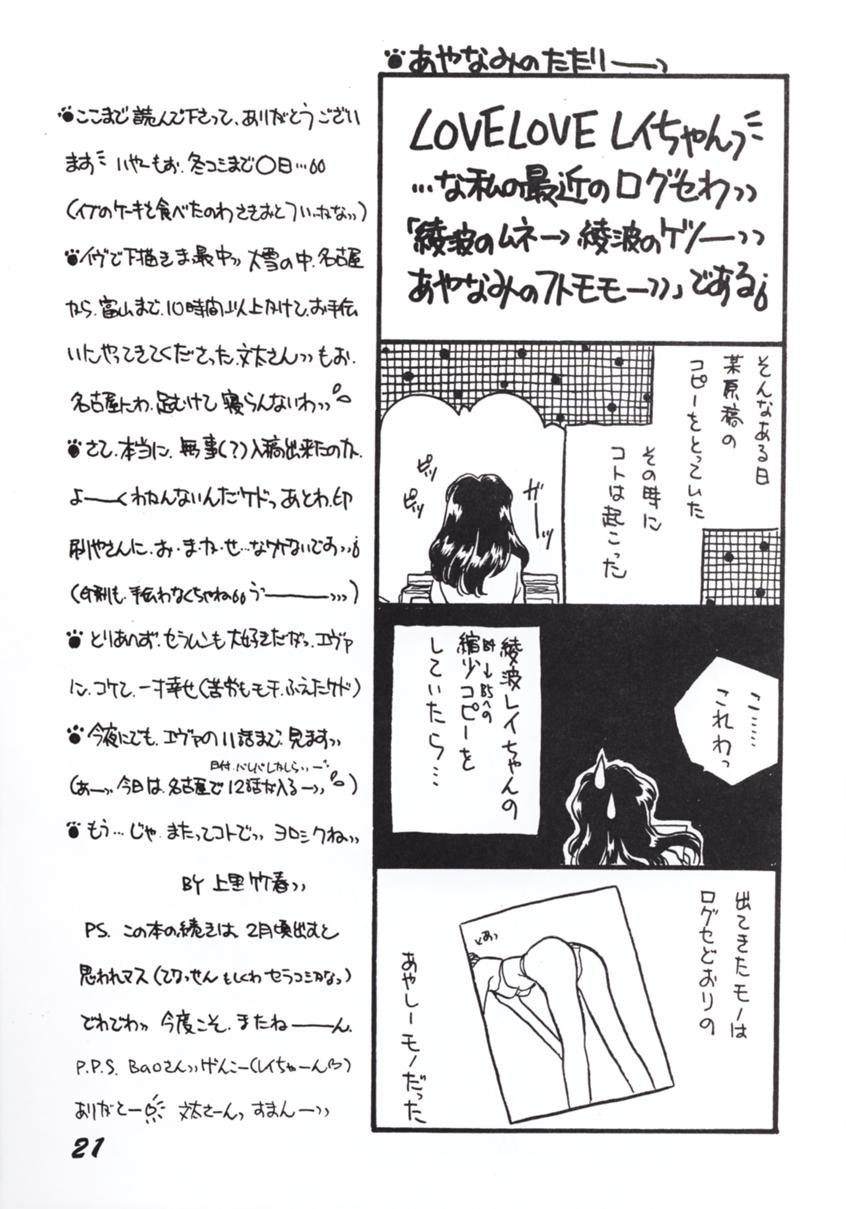 あやなみのたたりーっ
LOVELOVE レイちゃんっ
…な私の最近のログセわッッ
「綾波のムネーッ綾波のケツーーッッ
あやなみのフトモモーッッ」である。
そんなある日
某原稿の
コピーをとっていた
その時に
コトは起こった
ピッ
ピッ
ガーッ
こ……
これわっ
綾波レイちゃんの
B4→B5への
縮少コピーを
していたら…
出てきたモノは
ログセどおりの
あやしーモノだった
ここまで読んで下さって、ありがとうござい
ます いやーもお、冬コミまで〇日…
(イブのケーキを食べたのわさきおとついかなッ)
イヴで下描きま最中ッ 大雪の中、名古屋
から、富山まで、10時間以上かけて、お手伝
いにやってきてくださった、文太さんッ もお、
名古屋にわ、足むけて寝らんないわッッ
さて、本当に、無事(?)入稿出来たのか、
よーーくわかんないんだケドっ あとわ、印
刷やさんに、お・ま・か・せ…なワケないですッッ
(印刷も、手伝わなくちゃねうーーーッッ)
とりあへず、セラムンも大好きだがっ、エヴァ
に、コケて、一寸幸せ(苦労もモチ、ふえたケド)
今夜にでも、エヴァの11話まで、見ますッッ
日付、バレバレかしらッ
(あーッ、今日は、名古屋で12話が入るーッッ)
もう…じゃ、またってコトでッ ヨロシクねッッ
BY 上里竹春ッッ
PS. この本の続きは、2月頃出ると
思われマス(てなっせんもしくわセラコミかなっ)
でわでわッ 今度こそ、またねーーん。
P.P.S. Baoさんッッげんこー(レイちゃーん)
ありがとー 文太さーんっ すまんーッッ
21